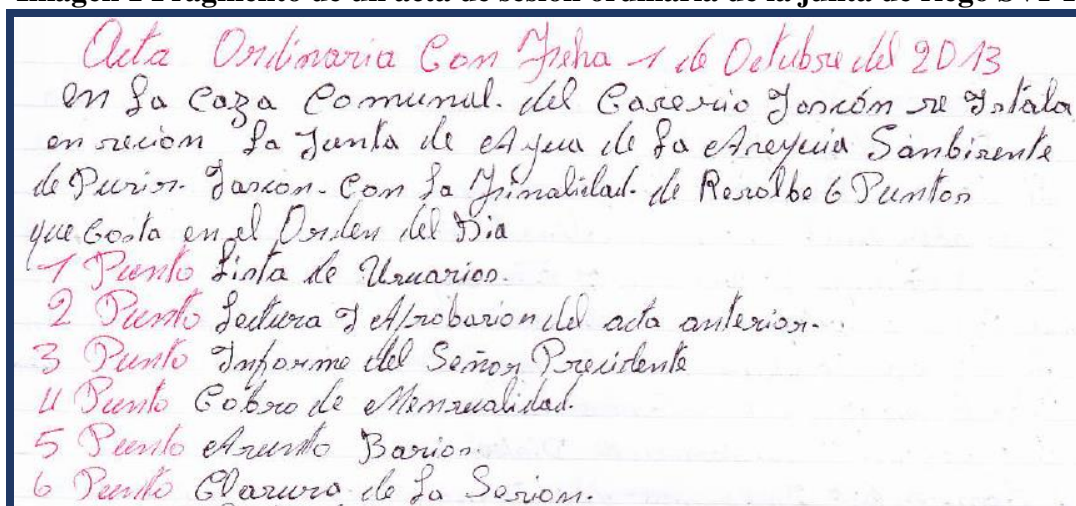 Imagen 1 Fragmento de un acta de sesión ordinaria de la junta de riego SVP
Acta Ordinaria Con Fecha 1 de Octubre del 2013
en La Caza Comunal. del Caserio Jorcón se Istala
en secion La Junta de Agua de La Asequia Sanbisente
de Purior. Jarcon. Con La Finalidad. de Resolbe 6 Puntos
que Costa en el Orden del Dia
1 Punto Lista de Usuarios.
2 Punto Lectura I Aprobasion del acta anterior.
3 Punto Informe del Señor Precidente
4 Punto Cobro de Mensualidad.
5 Punto Asunto Barios.
6 Punto Clasura de La Sesion.